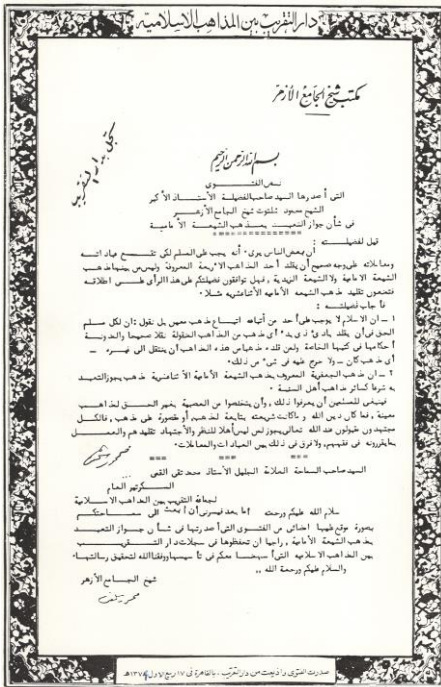 دار التقريب بين المذاهب الاسلامية
مكتب شيخ الجامع الأزهر
بسم الله الرحمن الرحيم
نص الفتوى
التى أصدرها السيد صاحب الفضيلة الأستاذ الأكبر
الشيخ محمود شلتوت شيخ الجامع الأزهر
فى شأن جواز التعبد بمذهب الشيعة الأمامية
قيل لفضيلته :
ان بعض الناس يرى أنه يجب على المسلم لكى تقع عباداته
ومعاملاته على وجه صحيح أن يقلد أحد المذاهب الأربعة المعروفة وليس من بينها مذهب
الشيعة الامامية ولا الشيعة الزيدية ، فهل توافقون فضيلتكم على هذا الرأى على اطلاقه
فتمنعون تقليد مذهب الشيعة الأمامية الأثنا عشرية مثلا .
فأجاب فضيلته :
١ - ان الاسلام لا يوجب على أحد من أتباعه اتباع مذهب معين بل نقول : ان لكل مسلم
الحق فى أن يقلد بادئ ذى بدء أى مذهب من المذاهب المنقولة نقلا صحيحا والمدونة
أحكامها فى كتبها الخاصة ولمن قلد مذهبا من هذه المذاهب أن ينتقل الى غيره -
أى مذهب كان - ولا حرج عليه فى شىء من ذلك .
٢ - ان مذهب الجعفرية المعروف بمذهب الشيعة الأمامية الأثنا عشرية مذهب يجوز التعبد
به شرعا كسائر مذاهب أهل السنة .
فينبغى للمسلمين أن يعرفوا ذلك ، وأن يتخلصوا من العصبية بغير الحق لمذاهب
معينة ، فما كان دين الله وما كانت شريعته بتابعة لمذهب ، أو مقصورة على مذهب ، فالكل
مجتهدون مقبولون عند الله تعالى يجوز لمن ليس أهلا للنظر والأجتهاد تقليدهم والعمل
بما يقررونه فى فقههم ، ولا فرق فى ذلك بين العبادات والمعاملات .
محمود شلتوت
السيد صاحب السماحة العلامة الجليل الأستاذ محمد تقى القمى
السكرتير العام
لجماعة التقريب بين المذاهب الاسلامية
سلام الله عليكم ورحمته أما بعد فيسرنى أن أبعث الى سماحتكم
بصورة موقع عليها بامضائى من الفتوى التى أصدرتها فى شأن جواز التعبد
بمذهب الشيعة الأمامية ، راجيا أن تحفظوها فى سجلات دار التقريب
بين المذاهب الاسلامية التى أسهمنا معكم فى تأسيسها ووفقنا الله لتحقيق رسالتها .
والسلام عليكم ورحمة الله ..
شيخ الجامع الأزهر
محمود شلتوت
صدرت الفتوى واذيعت من دار التقريب . بالقاهرة فى ١٧ ربيع الاول